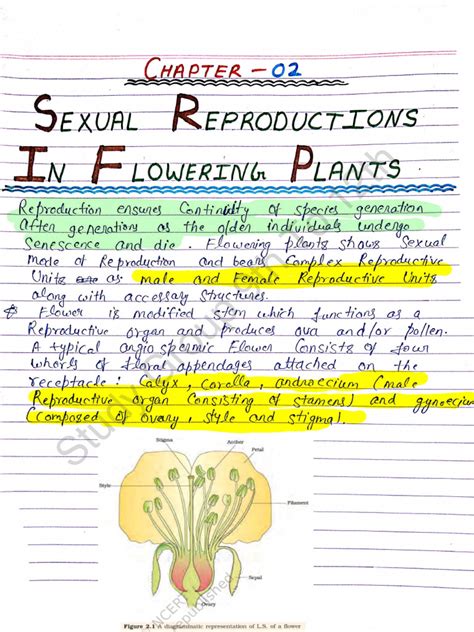 CHAPTER - 02
SEXUAL REPRODUCTIONS
IN FLOWERING PLANTS
Reproduction ensures Continuity of species generation
After generations as the older individuals undergo
Senescence and die. Flowering plants shows Sexual
mode of Reproduction and bears Complex Reproductive
Units as male and Female Reproductive Units
along with accessary Structures.
Flower is modified stem which functions as a
Reproductive organ and produces ova and/or pollen.
A typical angiospermic Flower Consists of four
whorls of floral appendages attached on the
receptacle: Calyx, corolla, androecium (male
Reproductive organ Consisting of stamens) and gynoecium
(composed of ovary, style and stigma).
Stigma
Anther
Petal
Style
Filament
Sepal
Ovary
Figure 2.1 A diagrammatic representation of L.S. of a flower
NCERT
republished
Study